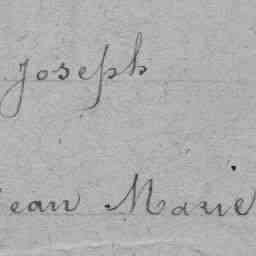 Joseph
Jean Marie